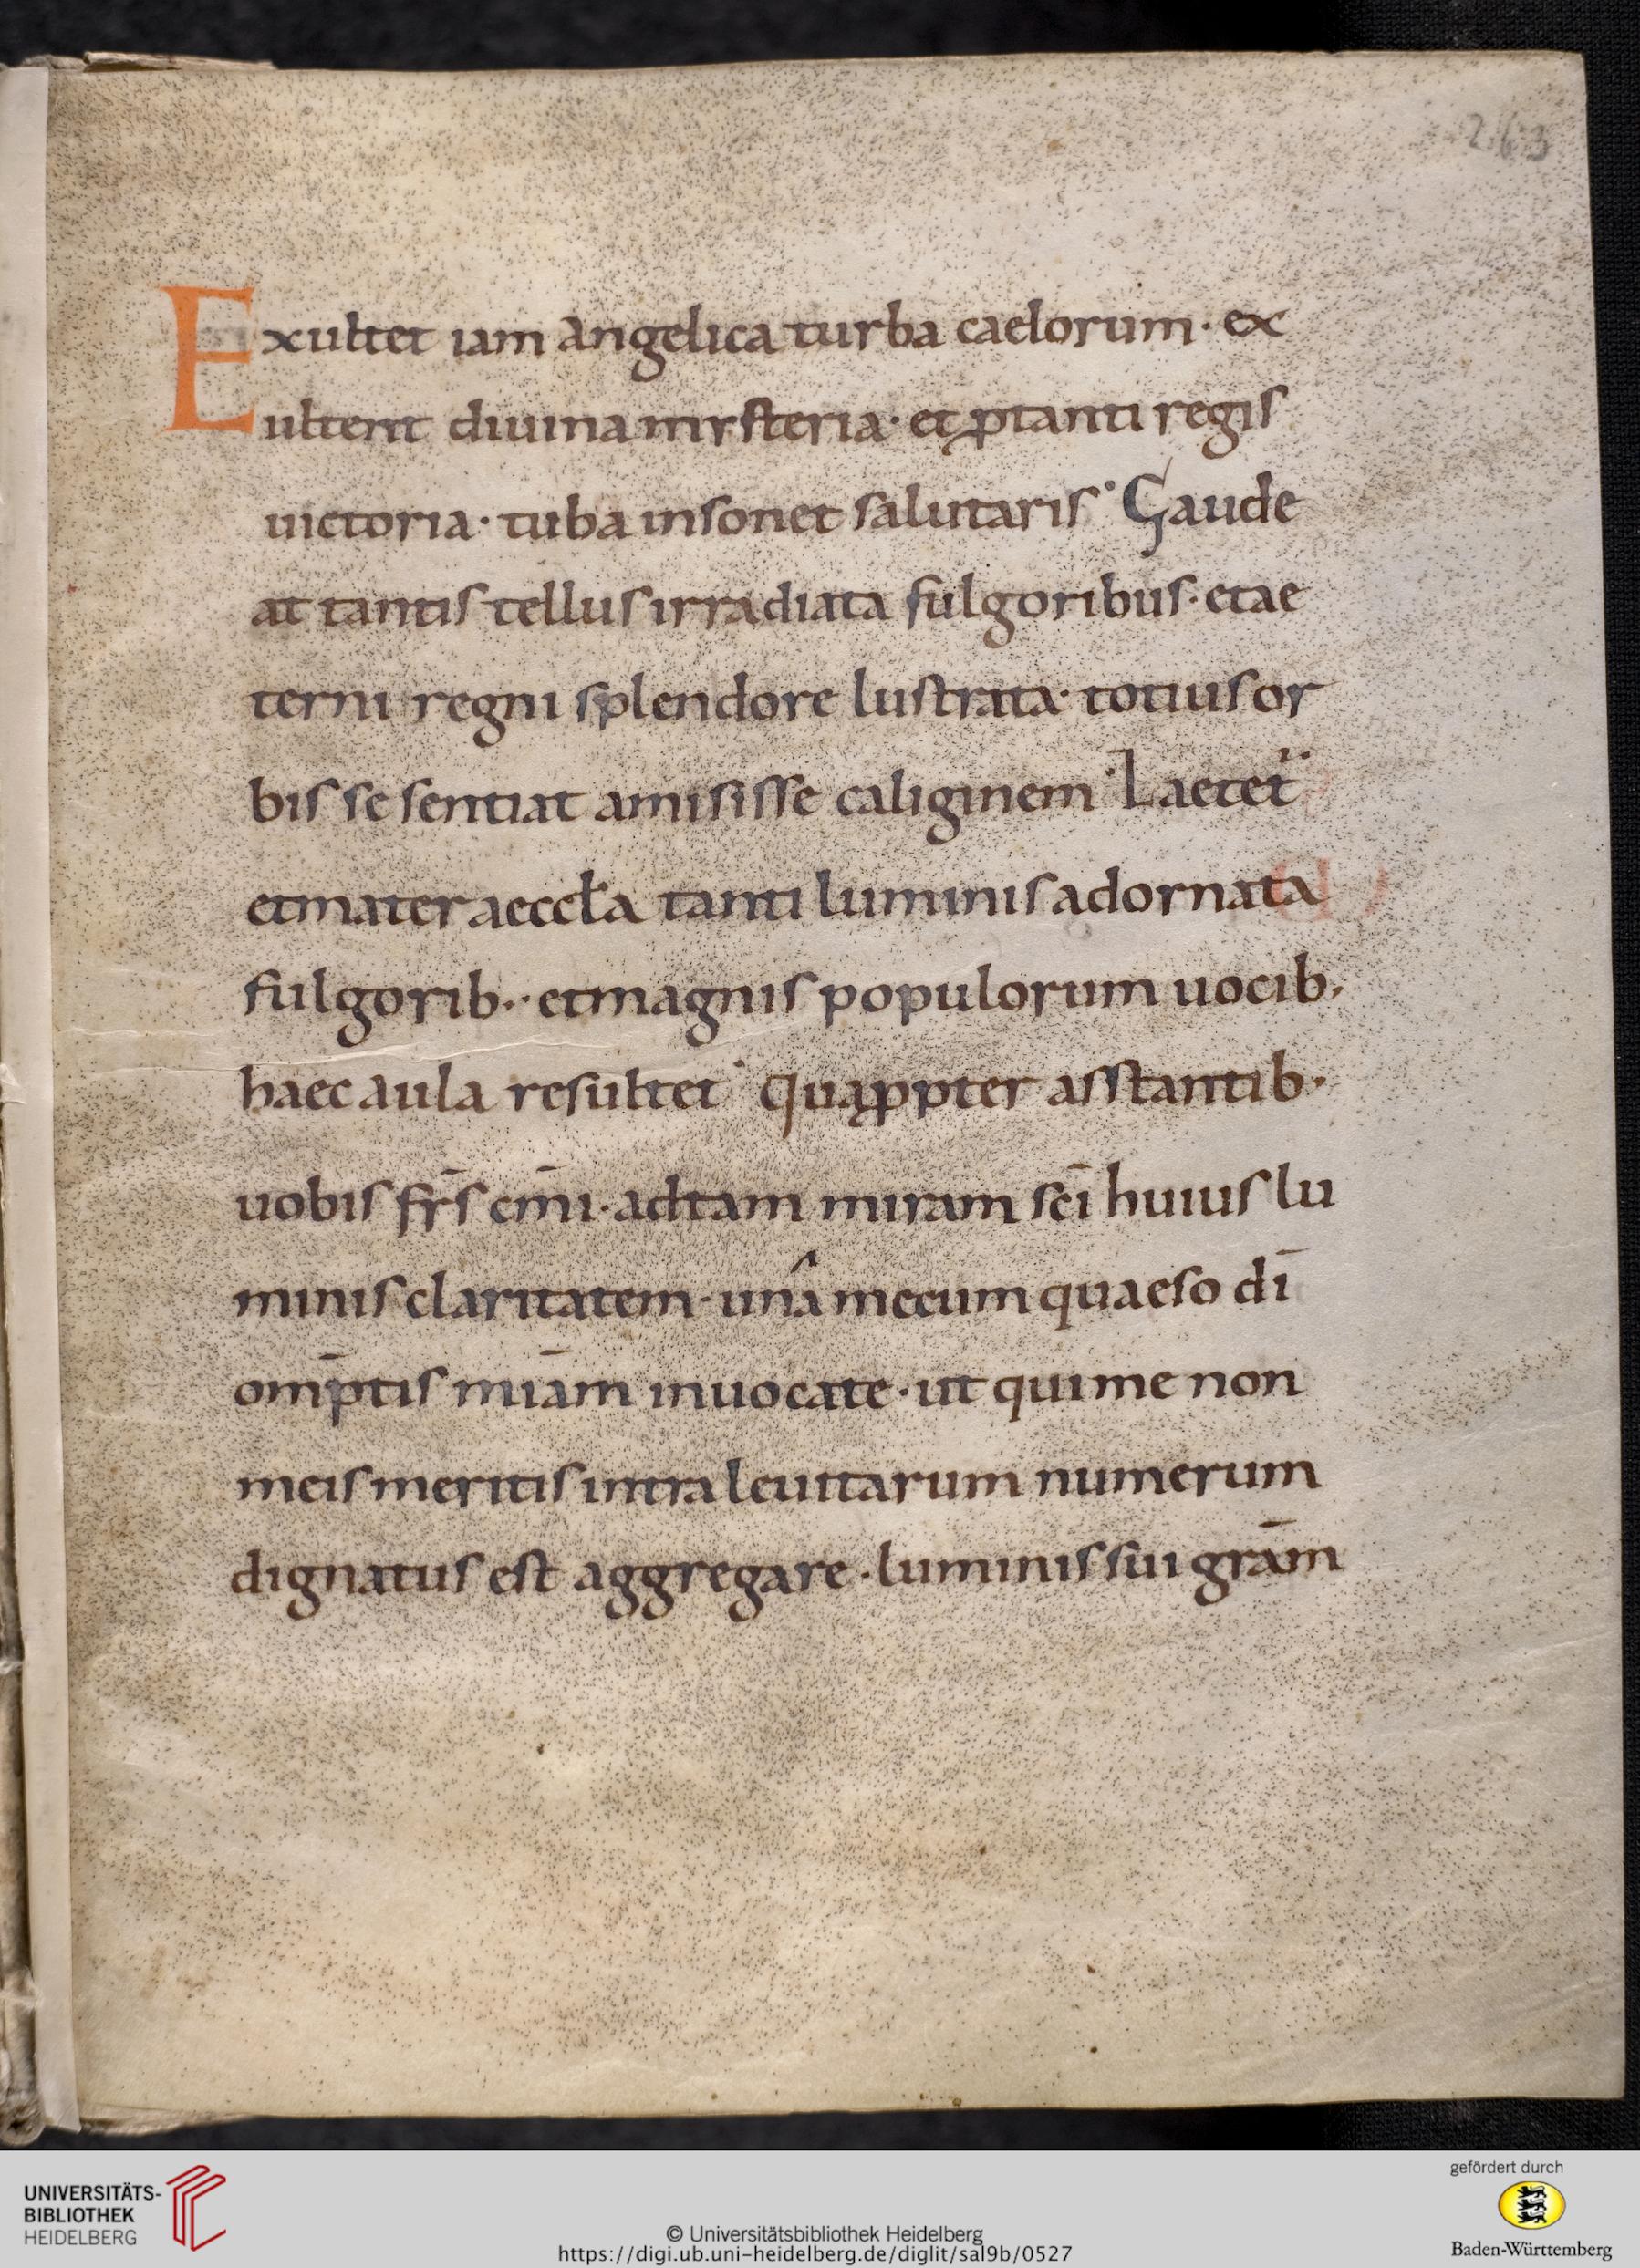 263
Exultet iam angelica turba caelorum· ex
ultent diuina mysteria· et ꝓ tanti regis
uictoria· tuba insonet salutaris· Gaude
at tantis tellus irradiata fulgoribus· et ae
terni regni splendore lustrata· totius or
bis se sentiat amisisse caliginem· Laeteẗ
et mater aeccƚa tanti luminis adornata
fulgorib·· et magnis populorum uocib·
haec aula resultet· Quaꝓpter asstantib·
uobis fr̄s cm̄i· ad tam miram sc̄i huius lu
minis claritatem· unâ mecum quaeso dī
omp̄tis miām inuocate· ut qui me non
meis meritis intra leuitarum numerum
dignatus est aggregare· luminis sui grām
UNIVERSITÄTS-
BIBLIOTHEK
HEIDELBERG
© Universitätsbibliothek Heidelberg
https://digi.ub.uni-heidelberg.de/diglit/sal9b/0527
gefördert durch
Baden-Württemberg